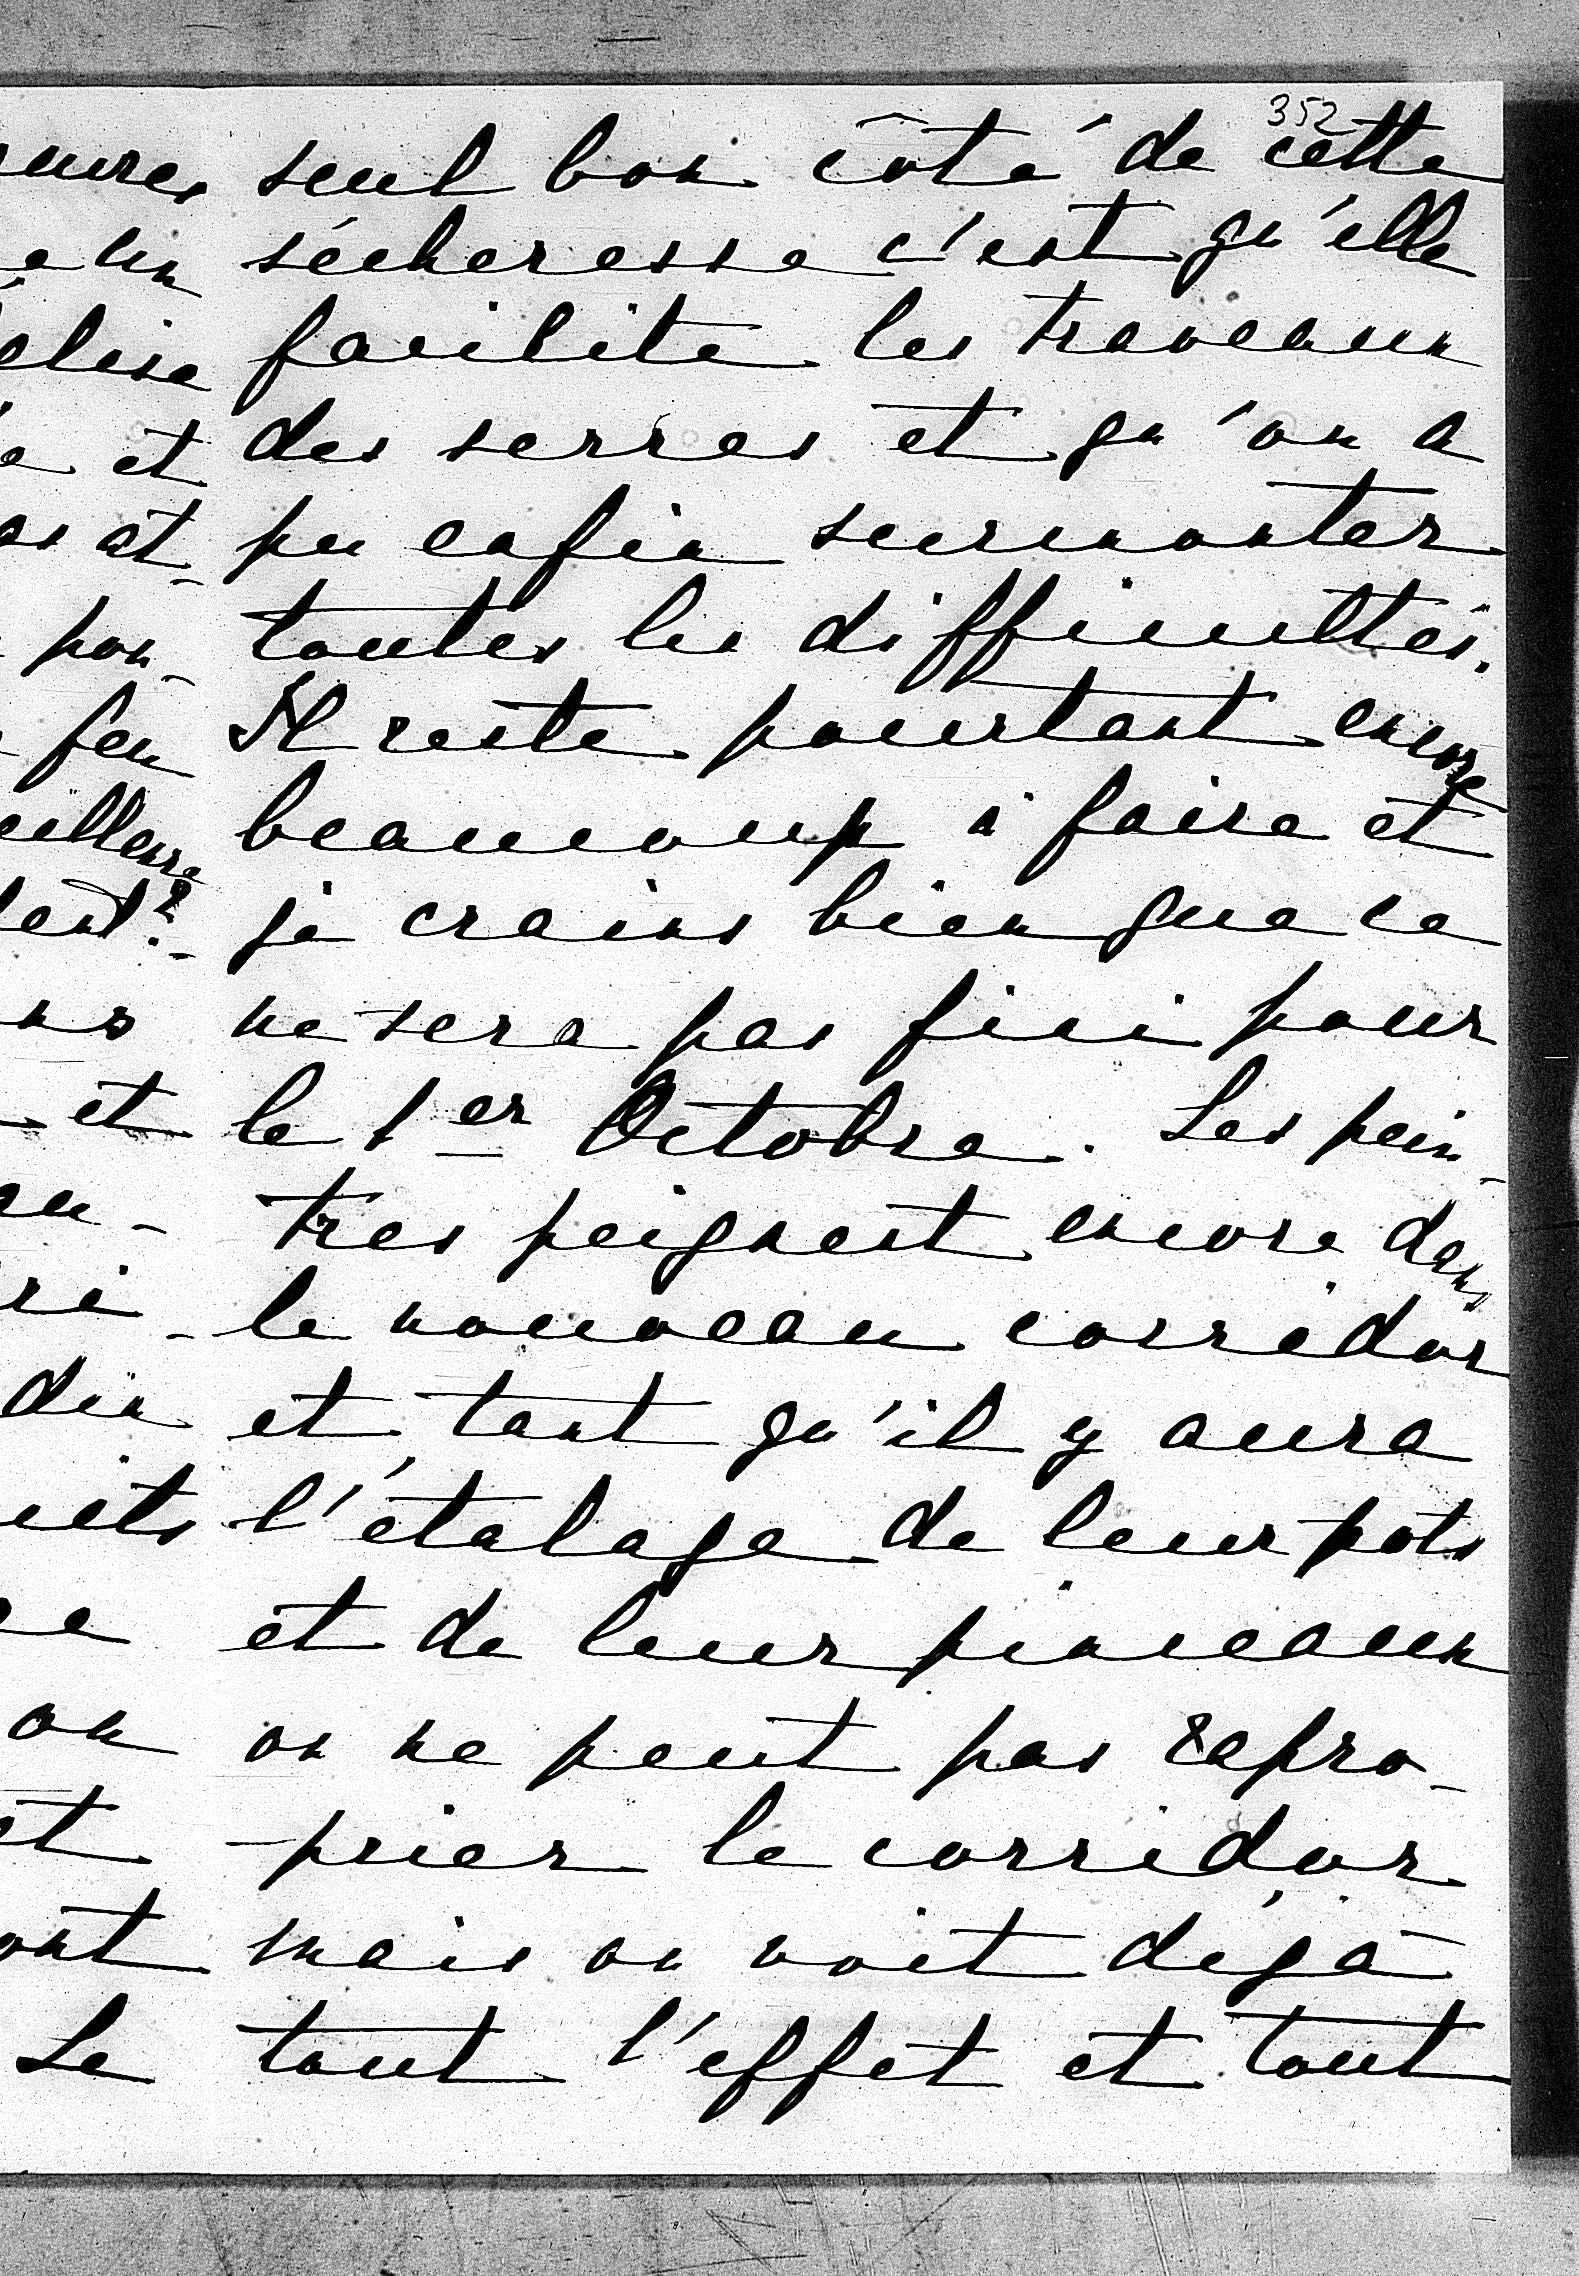 352
seul bon côté de cette
sécheresse c'est qu'elle
facilite les traveaux
des serres et qu'on a
pu enfin surmonter
toutes les difficultés.
Il reste pourtant encore
beaucoup à faire et
je crains bien que ce
ne sera pas fini pour
le 1er Octobre. Les pein-
tres peignent encore dans
le nouveau corridor
et tant qu'il y aura
l'étalage de leur pots
et de leur pinceaux
on ne peut pas rapro-
-prier le corridor
mais on voit déjà
tout l'effet et tout
un
et
at-
pou-
feu
eilleure
et
din
on
et
ont
Le